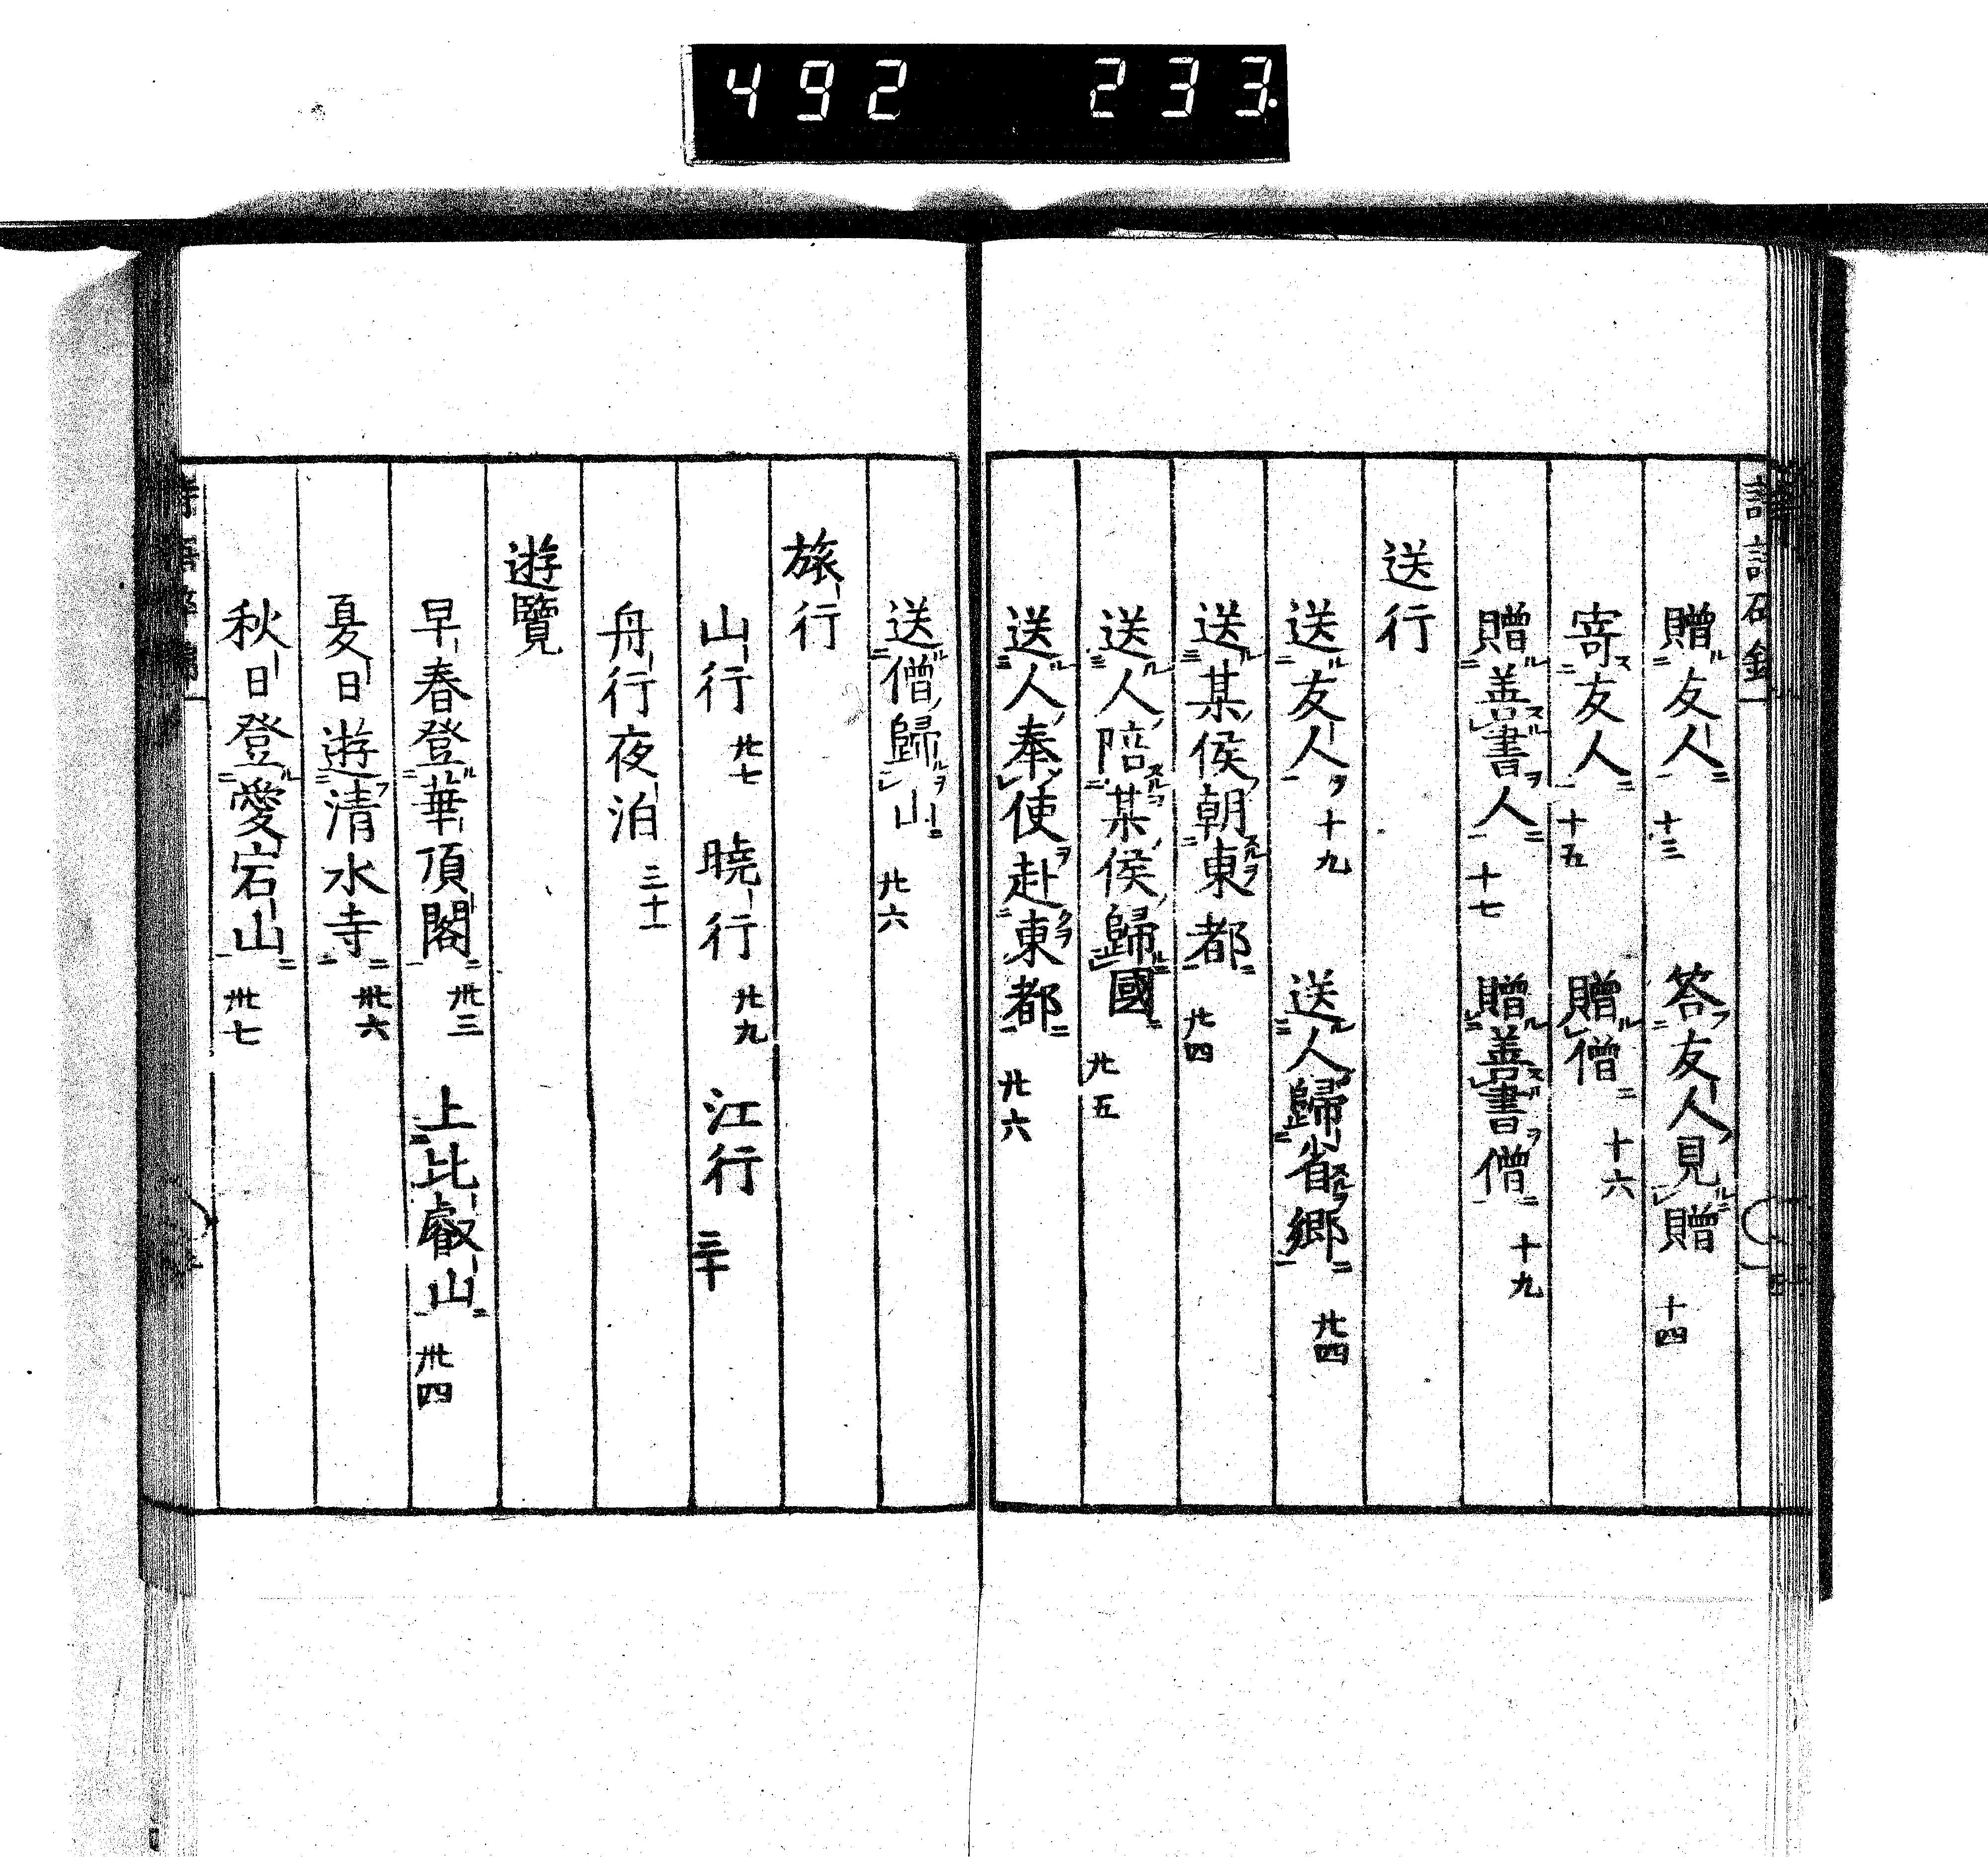 492 233.
贈友人 十三 答友人見贈 十四
寄友人 十五 贈僧 十六
贈善書人 十七 贈善書僧 十九
送行
送友人 十九 送人歸省郷 廿四
送某侯朝東都 廿四
送人陪某侯歸國 廿五
送人奉使赴東都 廿六
送僧歸山 廿六
旅行
山行 廿七 曉行 廿九 江行 三十
舟行夜泊 三十一
遊覽
早春登華頂閣 卅三 上比叡山 卅四
夏日遊清水寺 卅六
秋日登愛宕山 卅七